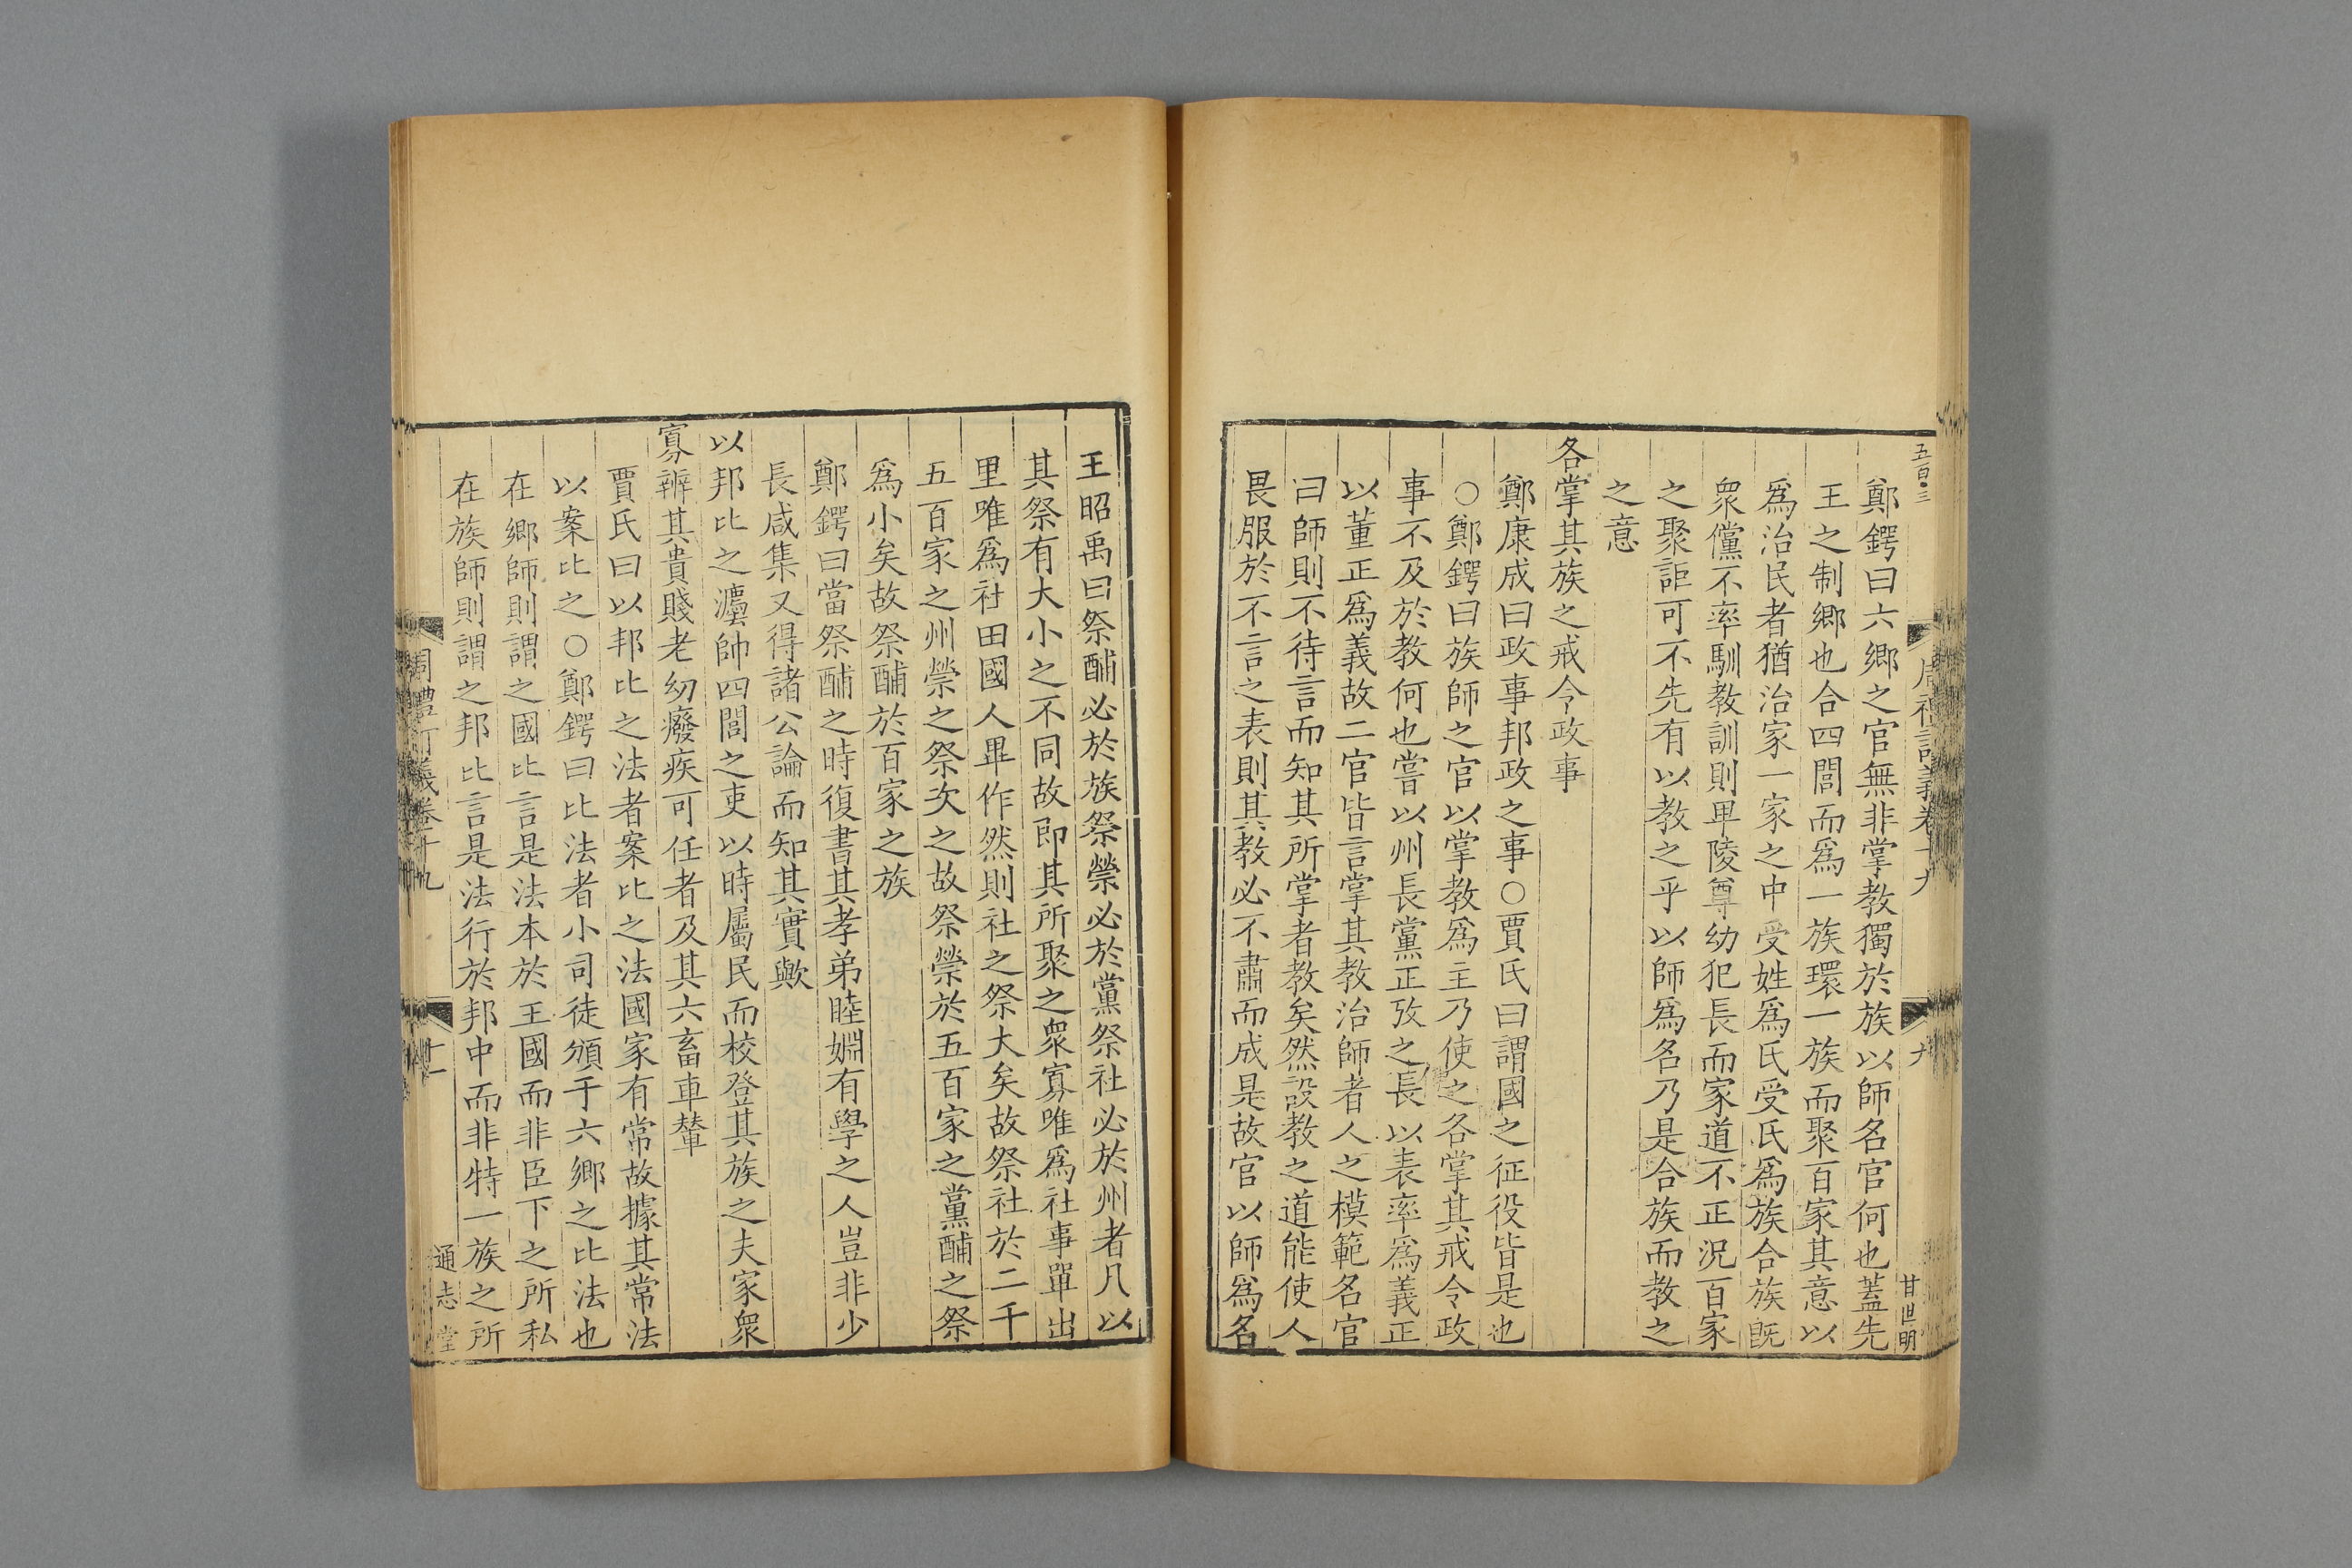 五百·三
周禮訂義卷十九
九
甘世明
鄭鍔曰六鄉之官無非掌教獨於族以師名官何也蓋先
王之制鄉也合四閭而爲一族環一族而聚百家其意以
爲治民者猶治家一家之中受姓爲氏受氏爲族合族旣
衆儻不率馴教訓則卑陵尊幼犯長而家道不正况百家
之聚詎可不先有以教之乎以師爲名乃是合族而教之
之意
各掌其族之戒令政事
鄭康成曰政事邦政之事○賈氏曰謂國之征役皆是也
○鄭鍔曰族師之官以掌教爲主乃使之各掌其戒令政
事不及於教何也嘗以州長黨正攷之長以表率爲義正
以董正爲義故二官皆言掌其教治師者人之模範名官
曰師則不待言而知其所掌者教矣然設教之道能使人
畏服於不言之表則其教必不肅而成是故官以師爲名
王昭禹曰祭酺必於族祭禜必於黨祭社必於州者凡以
其祭有大小之不同故即其所聚之衆寡唯爲社事單出
里唯爲社田國人畢作然則社之祭大矣故祭社於二千
五百家之州禜之祭次之故祭禜於五百家之黨酺之祭
爲小矣故祭酺於百家之族
鄭鍔曰當祭酺之時復書其孝弟睦婣有學之人豈非少
長咸集又得諸公論而知其實歟
以邦比之灋帥四閭之吏以時屬民而校登其族之夫家衆
寡辨其貴賤老幼癈疾可任者及其六畜車輦
賈氏曰以邦比之法者案比之法國家有常故據其常法
以案比之○鄭鍔曰比法者小司徒頒于六鄉之比法也
在鄉師則謂之國比言是法本於王國而非臣下之所私
在族師則謂之邦比言是法行於邦中而非特一族之所
周禮訂義卷十九
十一
通志堂